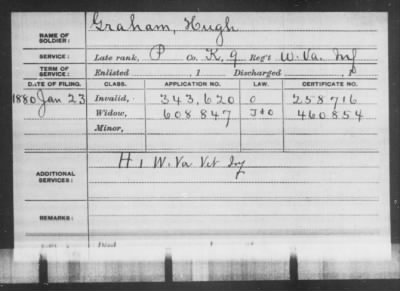 NAME OF SOLDIER: Graham, Hugh
SERVICE: Late rank, P Co. K, 9 Reg't W. Va. Inf
TERM OF SERVICE: Enlisted , 1 Discharged , 1
DATE OF FILING. CLASS. APPLICATION NO. LAW. CERTIFICATE NO.
1880 Jan 23 Invalid, 343,620 O 258716
Widow, 608847 J+O 460854
Minor,
ADDITIONAL SERVICES: H 1 W. Va Vet Inf
REMARKS:
Died